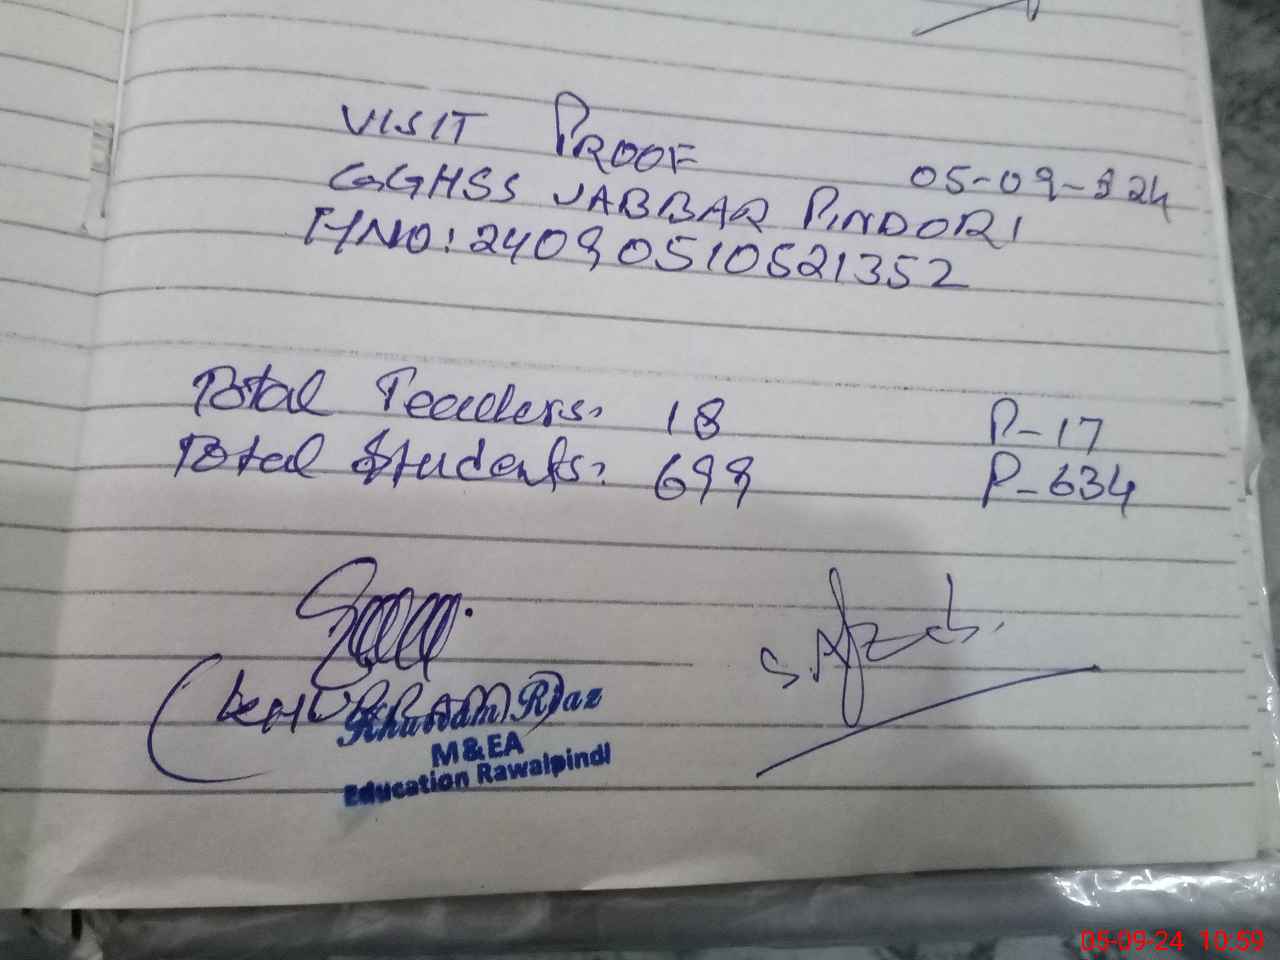 VISIT PROOF
05-09-224
GGHSS JABBAR PINDORI
HNO: 24090510521352
Total Teachers: 18 P-17
Total Students: 699 P-634
S. Afzal
(KHURRAM)
Khurram Riaz
M&EA
Education Rawalpindi
05-09-24 10:59